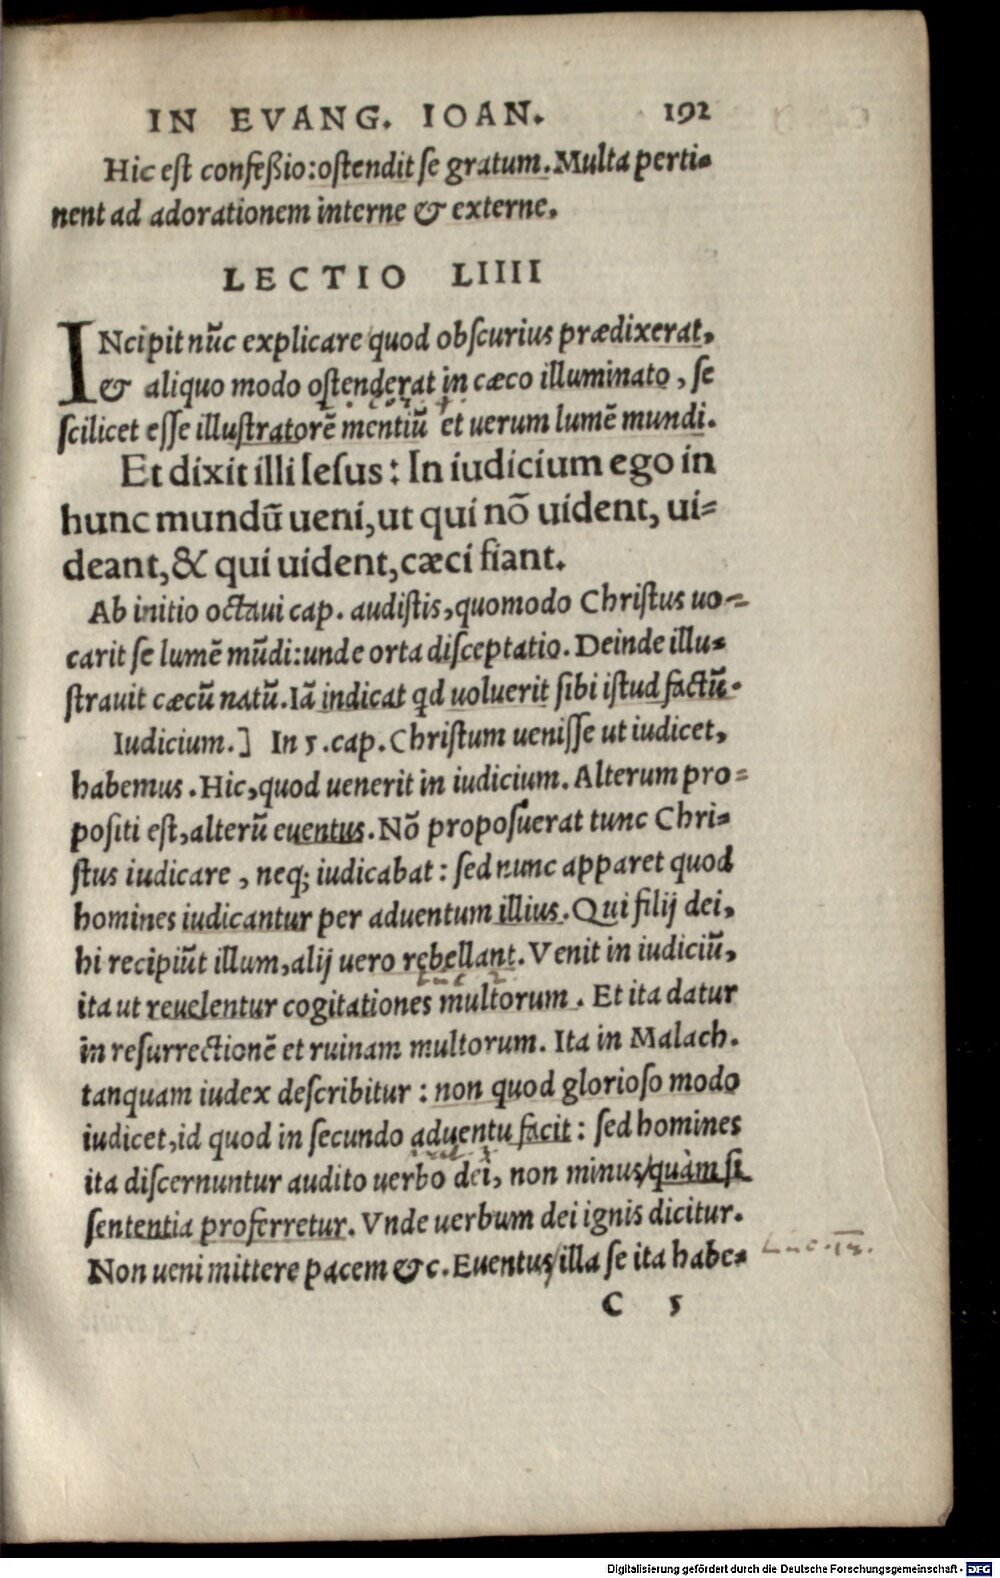 IN EVANG. IOAN. 192
Hic est confeßio: ostendit se gratum. Multa perti-
nent ad adorationem interne & externe.
LECTIO LIIII
INcipit nūc explicare quod obscurius prædixerat,
& aliquo modo ostenderat in cæco illuminato, se
scilicet esse illustratorē mentiū et uerum lumē mundi.
Et dixit illi Iesus: In iudicium ego in
hunc mundū ueni, ut qui nō uident, ui=
deant, & qui uident, cæci fiant.
Ab initio octaui cap. audistis, quomodo Christus uo-
carit se lumē mūdi: unde orta disceptatio. Deinde illu-
strauit cæcū natū. Iā indicat qd uoluerit sibi istud factū.
Iudicium.] In 5. cap. Christum uenisse ut iudicet,
habemus. Hic, quod uenerit in iudicium. Alterum pro=
positi est, alterū euentus. Nō proposuerat tunc Chri-
stus iudicare, neq; iudicabat: sed nunc apparet quod
homines iudicantur per aduentum illius. Qui filij dei,
hi recipiūt illum, alij uero rebellant. Venit in iudiciū,
ita ut reuelentur cogitationes multorum. Et ita datur
in resurrectionē et ruinam multorum. Ita in Malach.
tanquam iudex describitur: non quod glorioso modo
iudicet, id quod in secundo aduentu facit: sed homines
ita discernuntur audito uerbo dei, non minus, quàm si
sententia proferretur. Vnde uerbum dei ignis dicitur.
Non ueni mittere pacem &c. Euentus illa se ita habe-
C 5
Digitalisierung gefördert durch die Deutsche Forschungsgemeinschaft - DFG